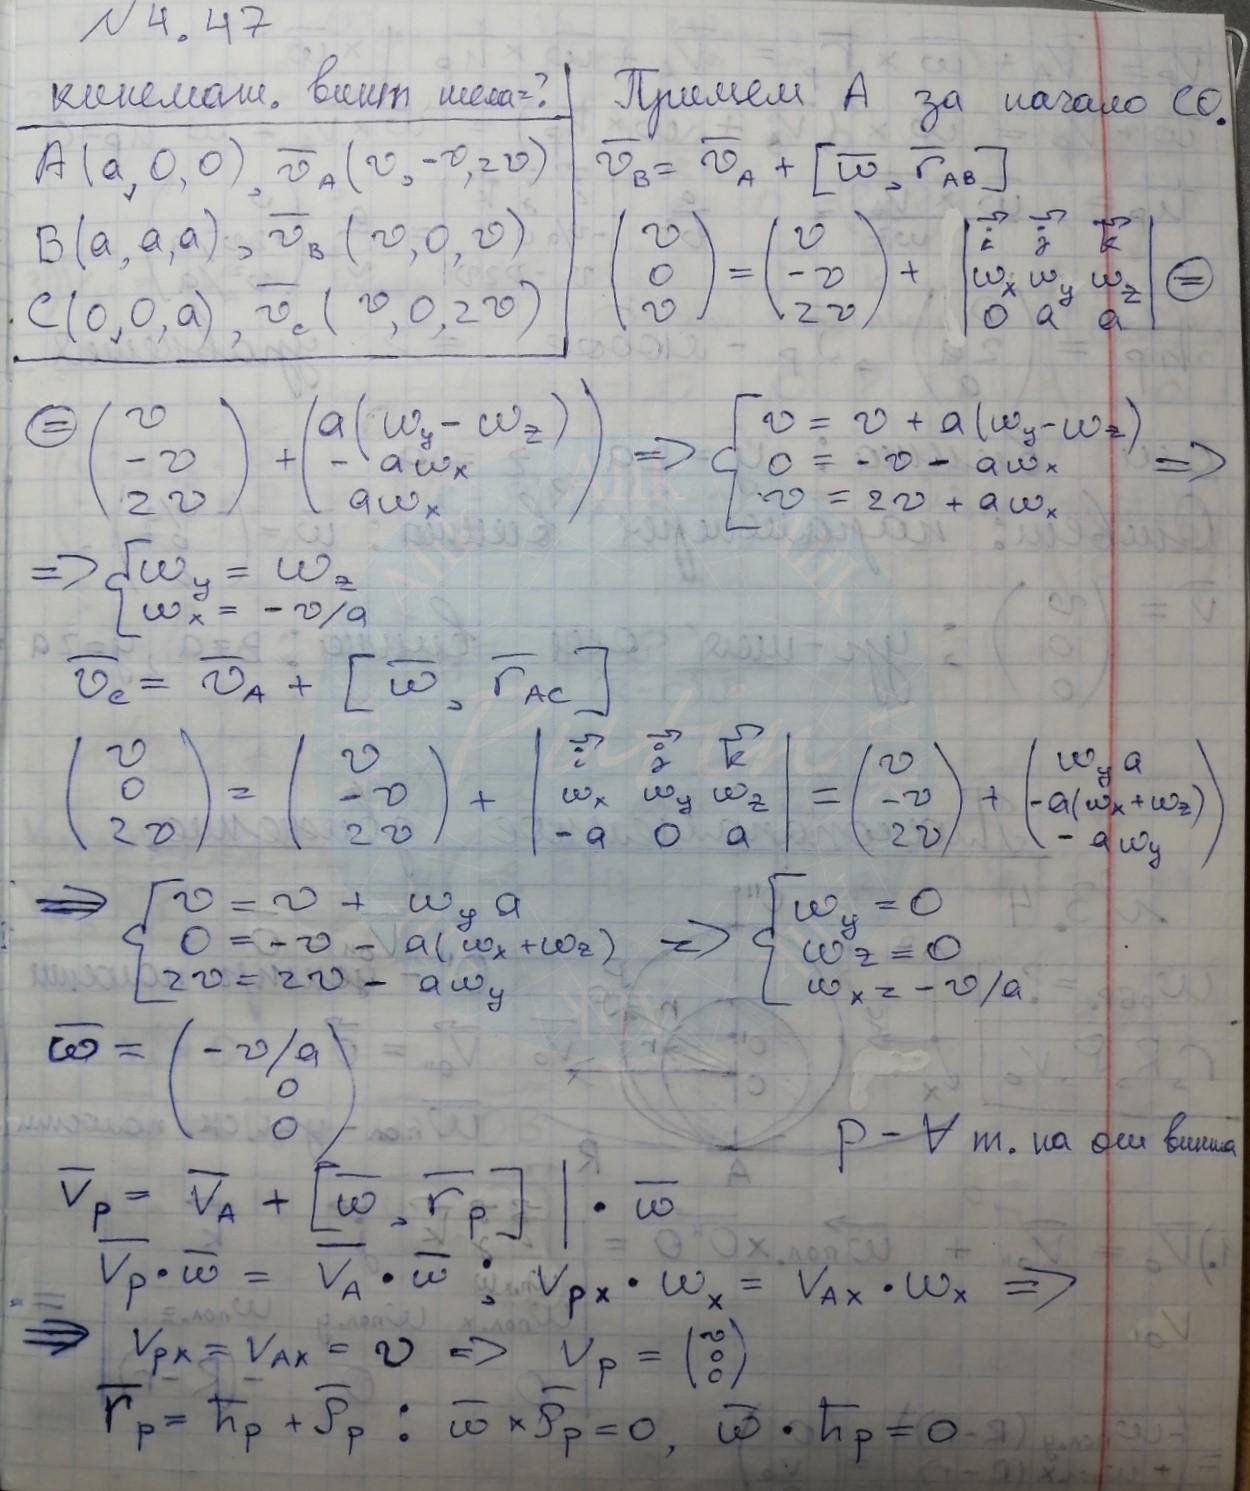 N 4.47
кинемат. винт тела=?
A(a,0,0), v̅_A(v,-v,2v)
B(a,a,a), v̅_B(v,0,v)
C(0,0,a), v̅_c(v,0,2v)
Примем A за начало СО.
v̅_B = v̅_A + [w̅, r̅_AB]
(v 0 v) = (v -v 2v) + |i⃗ j⃗ k⃗ w_x w_y w_z 0 a a| =
= (v -v 2v) + (a(w_y - w_z) -aw_x aw_x) => { v = v + a(w_y - w_z) 0 = -v - aw_x v = 2v + aw_x =>
=> { w_y = w_z w_x = -v/a
v̅_c = v̅_A + [w̅, r̅_AC]
(v 0 2v) = (v -v 2v) + |i⃗ j⃗ k⃗ w_x w_y w_z -a 0 a| = (v -v 2v) + (w_y a -a(w_x+w_z) -aw_y)
=> { v = v + w_y a 0 = -v - a(w_x+w_z) 2v = 2v - aw_y => { w_y = 0 w_z = 0 w_x = -v/a
w̅ = (-v/a 0 0)
p - ∀ т. на оси винта
V̅_p = V̅_A + [w̅, r̅_p] | · w̅
V̅_p · w̅ = V̅_A · w̅ ; V_px · w_x = V_Ax · w_x =>
=> V_px = V_Ax = v => V_p = (v 0 0)
r̅_p = h̅_p + ρ̅_p : w̅ × ρ̅_p = 0, w̅ · h̅_p = 0